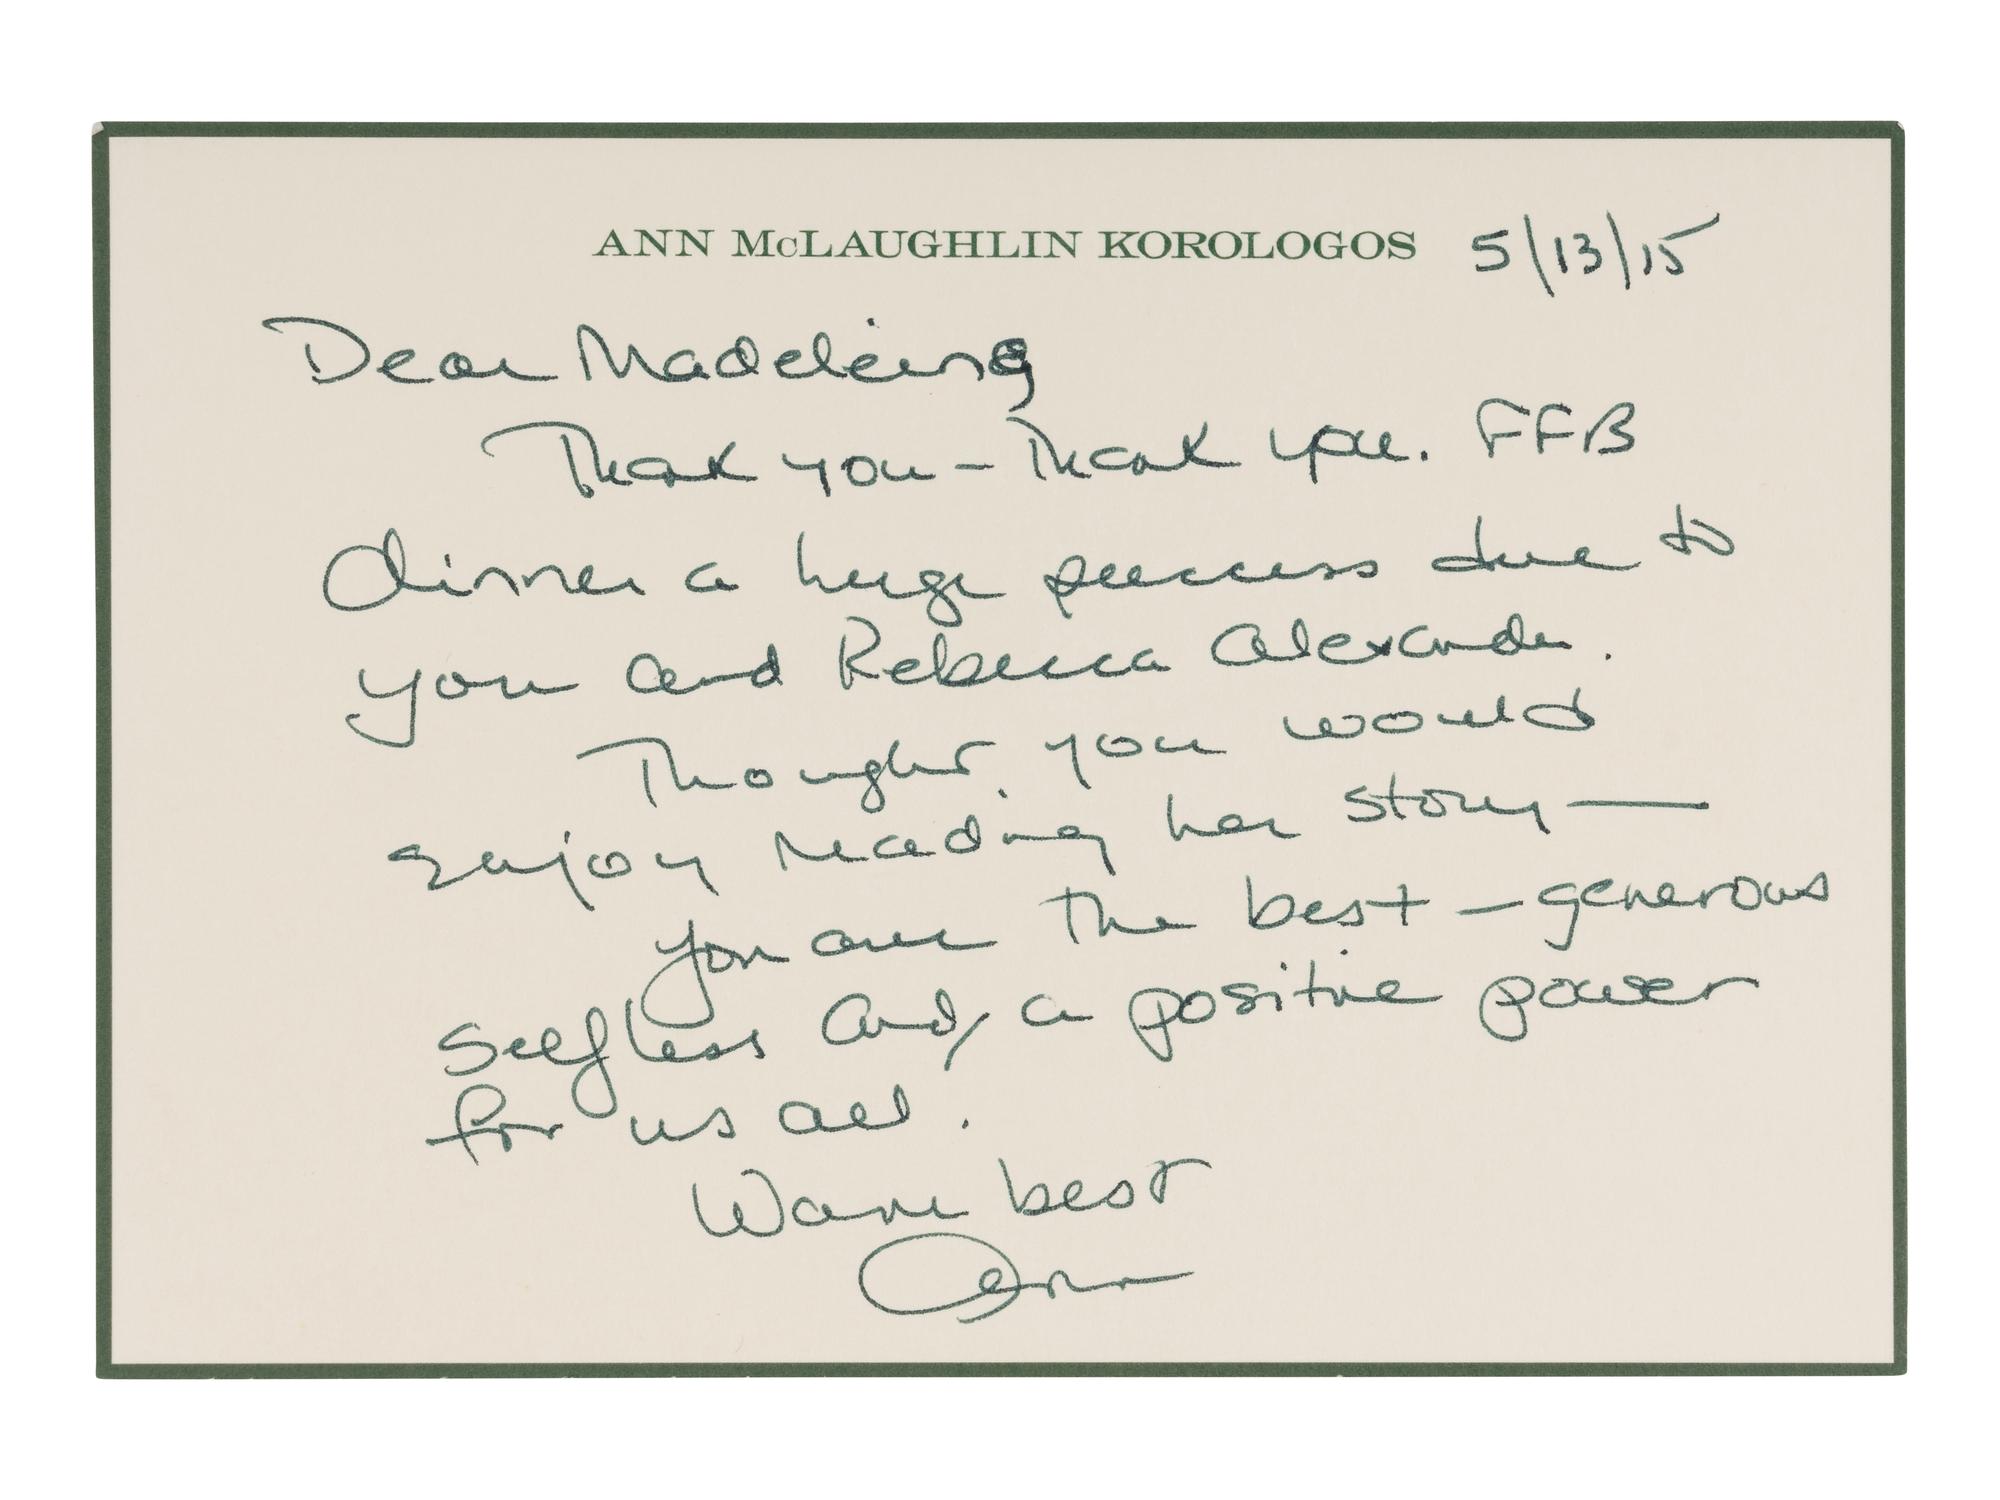 ANN McLAUGHLIN KOROLOGOS 5/13/15
Dear Madeleine
Thank you – Thank you. FFB
dinner a huge success due to
you and Rebecca Alexander.
Thought you would
enjoy reading her story —
you are the best – generous
selfless and, a positive power
for us all.
Warm best
Ann